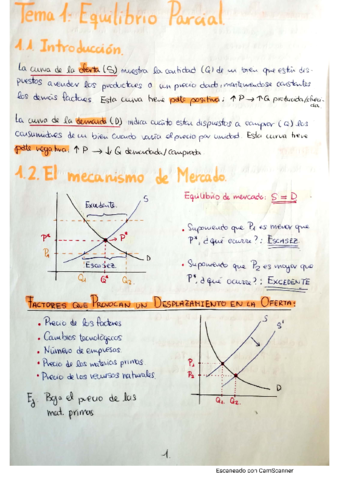 Tema 1: Equilibrio Parcial
1.1. Introducción.
La curva de la oferta (S) muestra la cantidad (Q) de un bien que están dis-
puestos a vender los productores a un precio dado, manteniéndose constantes
los demás factores. Esta curva tiene pdte positiva: ↑P → ↑Q producida/ofrecida
La curva de la demanda (D) indica cuánto están dispuestos a comprar (Q) los
consumidores de un bien cuando varía el precio por unidad. Esta curva tiene
pdte negativa: ↑P → ↓Q demandada/comprada
1.2. El mecanismo de Mercado.
Equilibrio de mercado: S = D
P
S
Excedente
P*
P*
P1
Escasez
D
Q1 Q* Q2
• Suponiendo que P1 es menor que
P*, ¿qué ocurre?: ESCASEZ
• Suponiendo que P2 es mayor que
P*, ¿qué ocurre?: EXCEDENTE
FACTORES QUE PROVOCAN UN DESPLAZAMIENTO EN LA OFERTA:
• Precio de los factores
• Cambios tecnológicos
• Número de empresas
• Precio de las materias primas
• Precio de los recursos naturales.
Ej Baja el precio de las
mat. primas
S
S'
P1
P2
D
Q1 Q2
1.
Escaneado con CamScanner